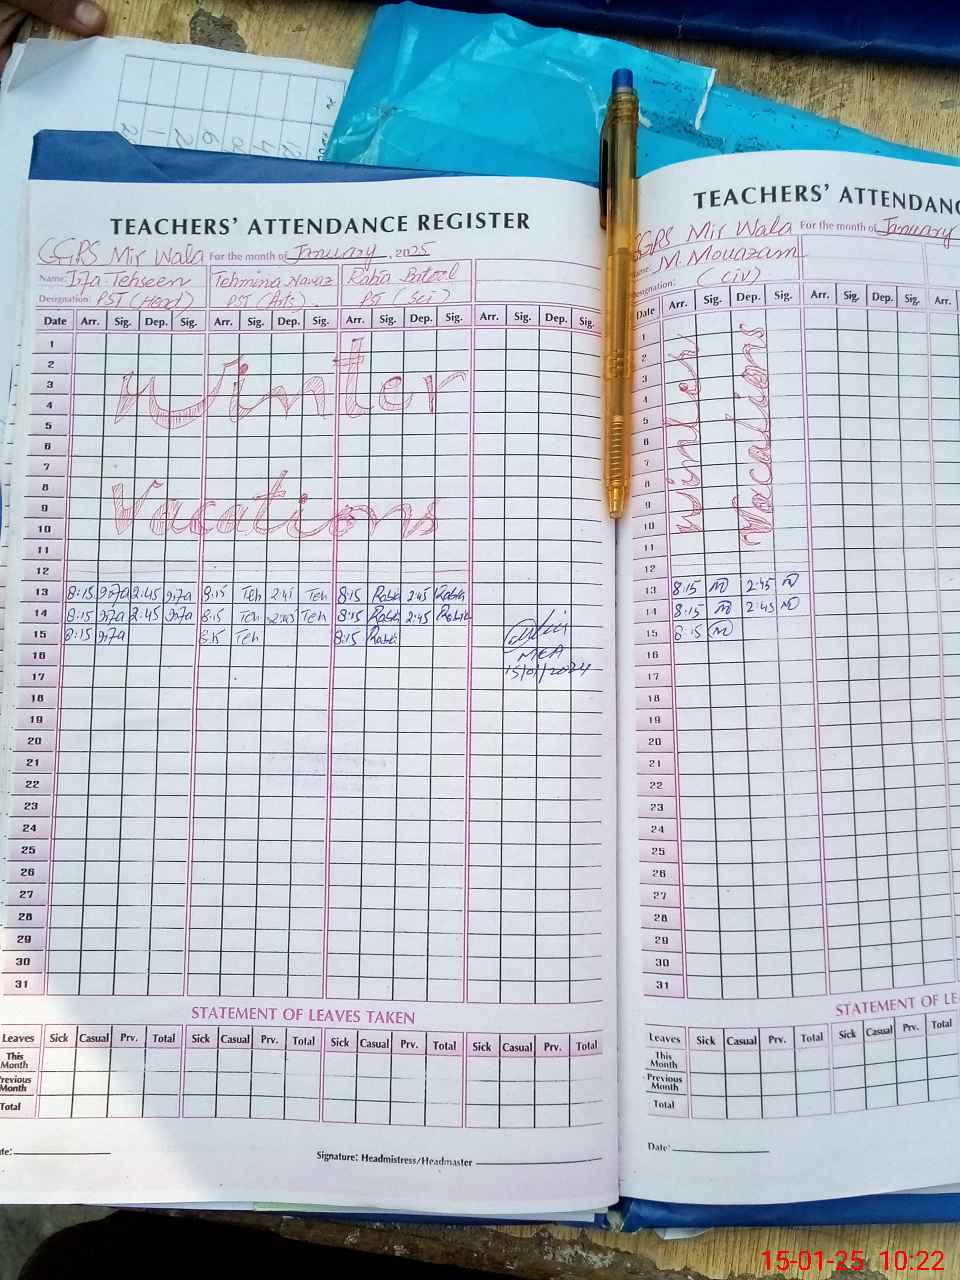 TEACHERS' ATTENDANCE REGISTER
GGPS Mir Wala For the month of January, 2025
Name: Iffa Tehseen Tehmina Nawaz Rabia Batool
Designation: PST (Head) PST (Arts). PST (Sci)
Date Arr. Sig. Dep. Sig. Arr. Sig. Dep. Sig. Arr. Sig. Dep. Sig. Arr. Sig. Dep. Sig.
1
2
3
4
5
6
7
8
9
10
11
12
Winter
Vacations
13 8:15 Iffa 2:45 Iffa 8:15 Teh 2:45 Teh 8:15 Rabia 2:45 Rabia
14 8:15 Iffa 2:45 Iffa 8:15 Teh 2:45 Teh 8:15 Rabia 2:45 Rabia
15 8:15 Iffa 8:15 Teh 8:15 Rabia
MEA
15/01/2024
16
17
18
19
20
21
22
23
24
25
26
27
28
29
30
31
STATEMENT OF LEAVES TAKEN
Leaves Sick Casual Prv. Total Sick Casual Prv. Total Sick Casual Prv. Total Sick Casual Prv. Total
This Month
Previous Month
Total
Signature: Headmistress/Headmaster
TEACHERS' ATTENDANC
GGPS Mir Wala For the month of January
Name: M. Mouazam
Designation: (civ)
Date Arr. Sig. Dep. Sig. Arr. Sig. Dep. Sig. Arr.
1
2
3
4
5
6
7
8
9
10
11
12
Winter
Vacations
13 8:15 M 2:45 M
14 8:15 M 2:45 M
15 8:15 M
16
17
18
19
20
21
22
23
24
25
26
27
28
29
30
31
STATEMENT OF LE
Leaves Sick Casual Prv. Total Sick Casual Prv. Total
This Month
Previous Month
Total
Date:
15-01-25 10:22